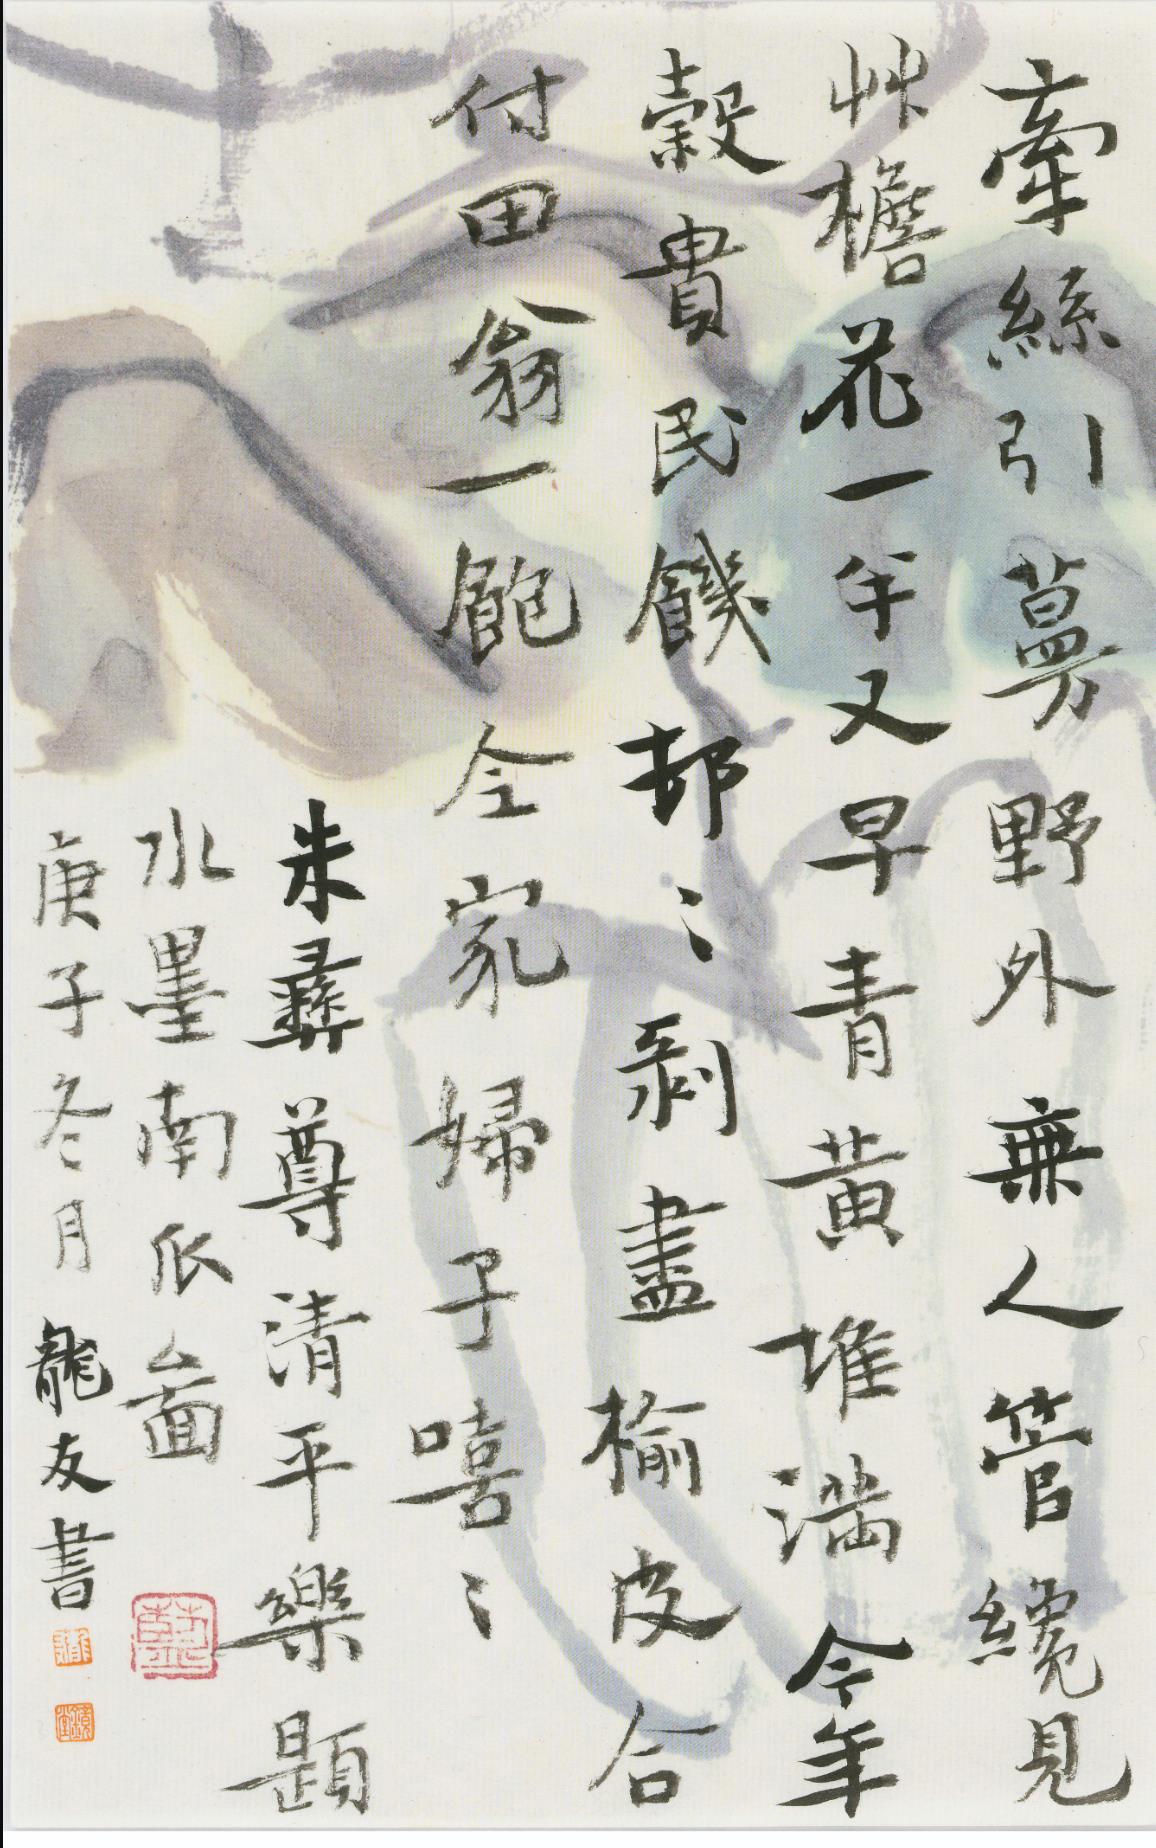 牽絲引蔓野外無人管纔見
艸檐花一半又早青黃堆滿今年
穀貴民饑邨〻剥盡榆皮合
付田翁一飽全家婦子嘻〻
朱彝尊清平樂題
水墨南瓜畫
庚子冬月龍友書